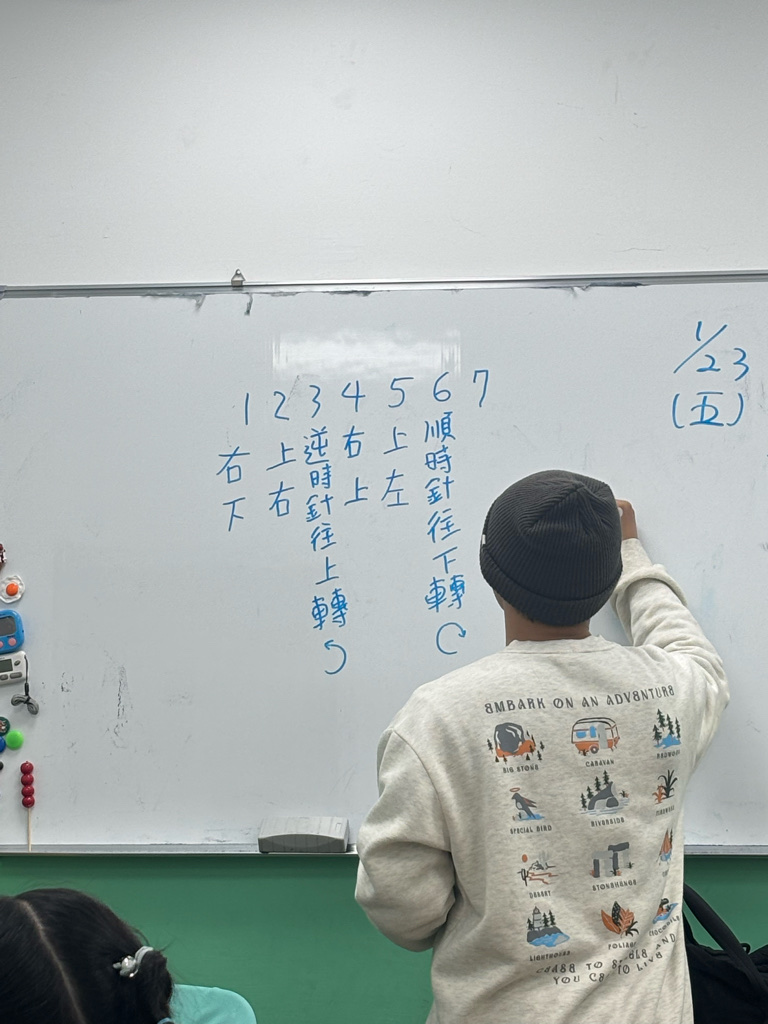 1/23
(五)
1 2 3 4 5 6 7
右下
上右
逆時針往上轉
右上
上左
順時針往下轉
EMBARK ON AN ADVENTURE
BIG STONE
CARAVAN
SPECIAL BIRD
RIVERSIDE
DESERT
STONEHENGE
LIGHTHOUSE
FOLIAGE